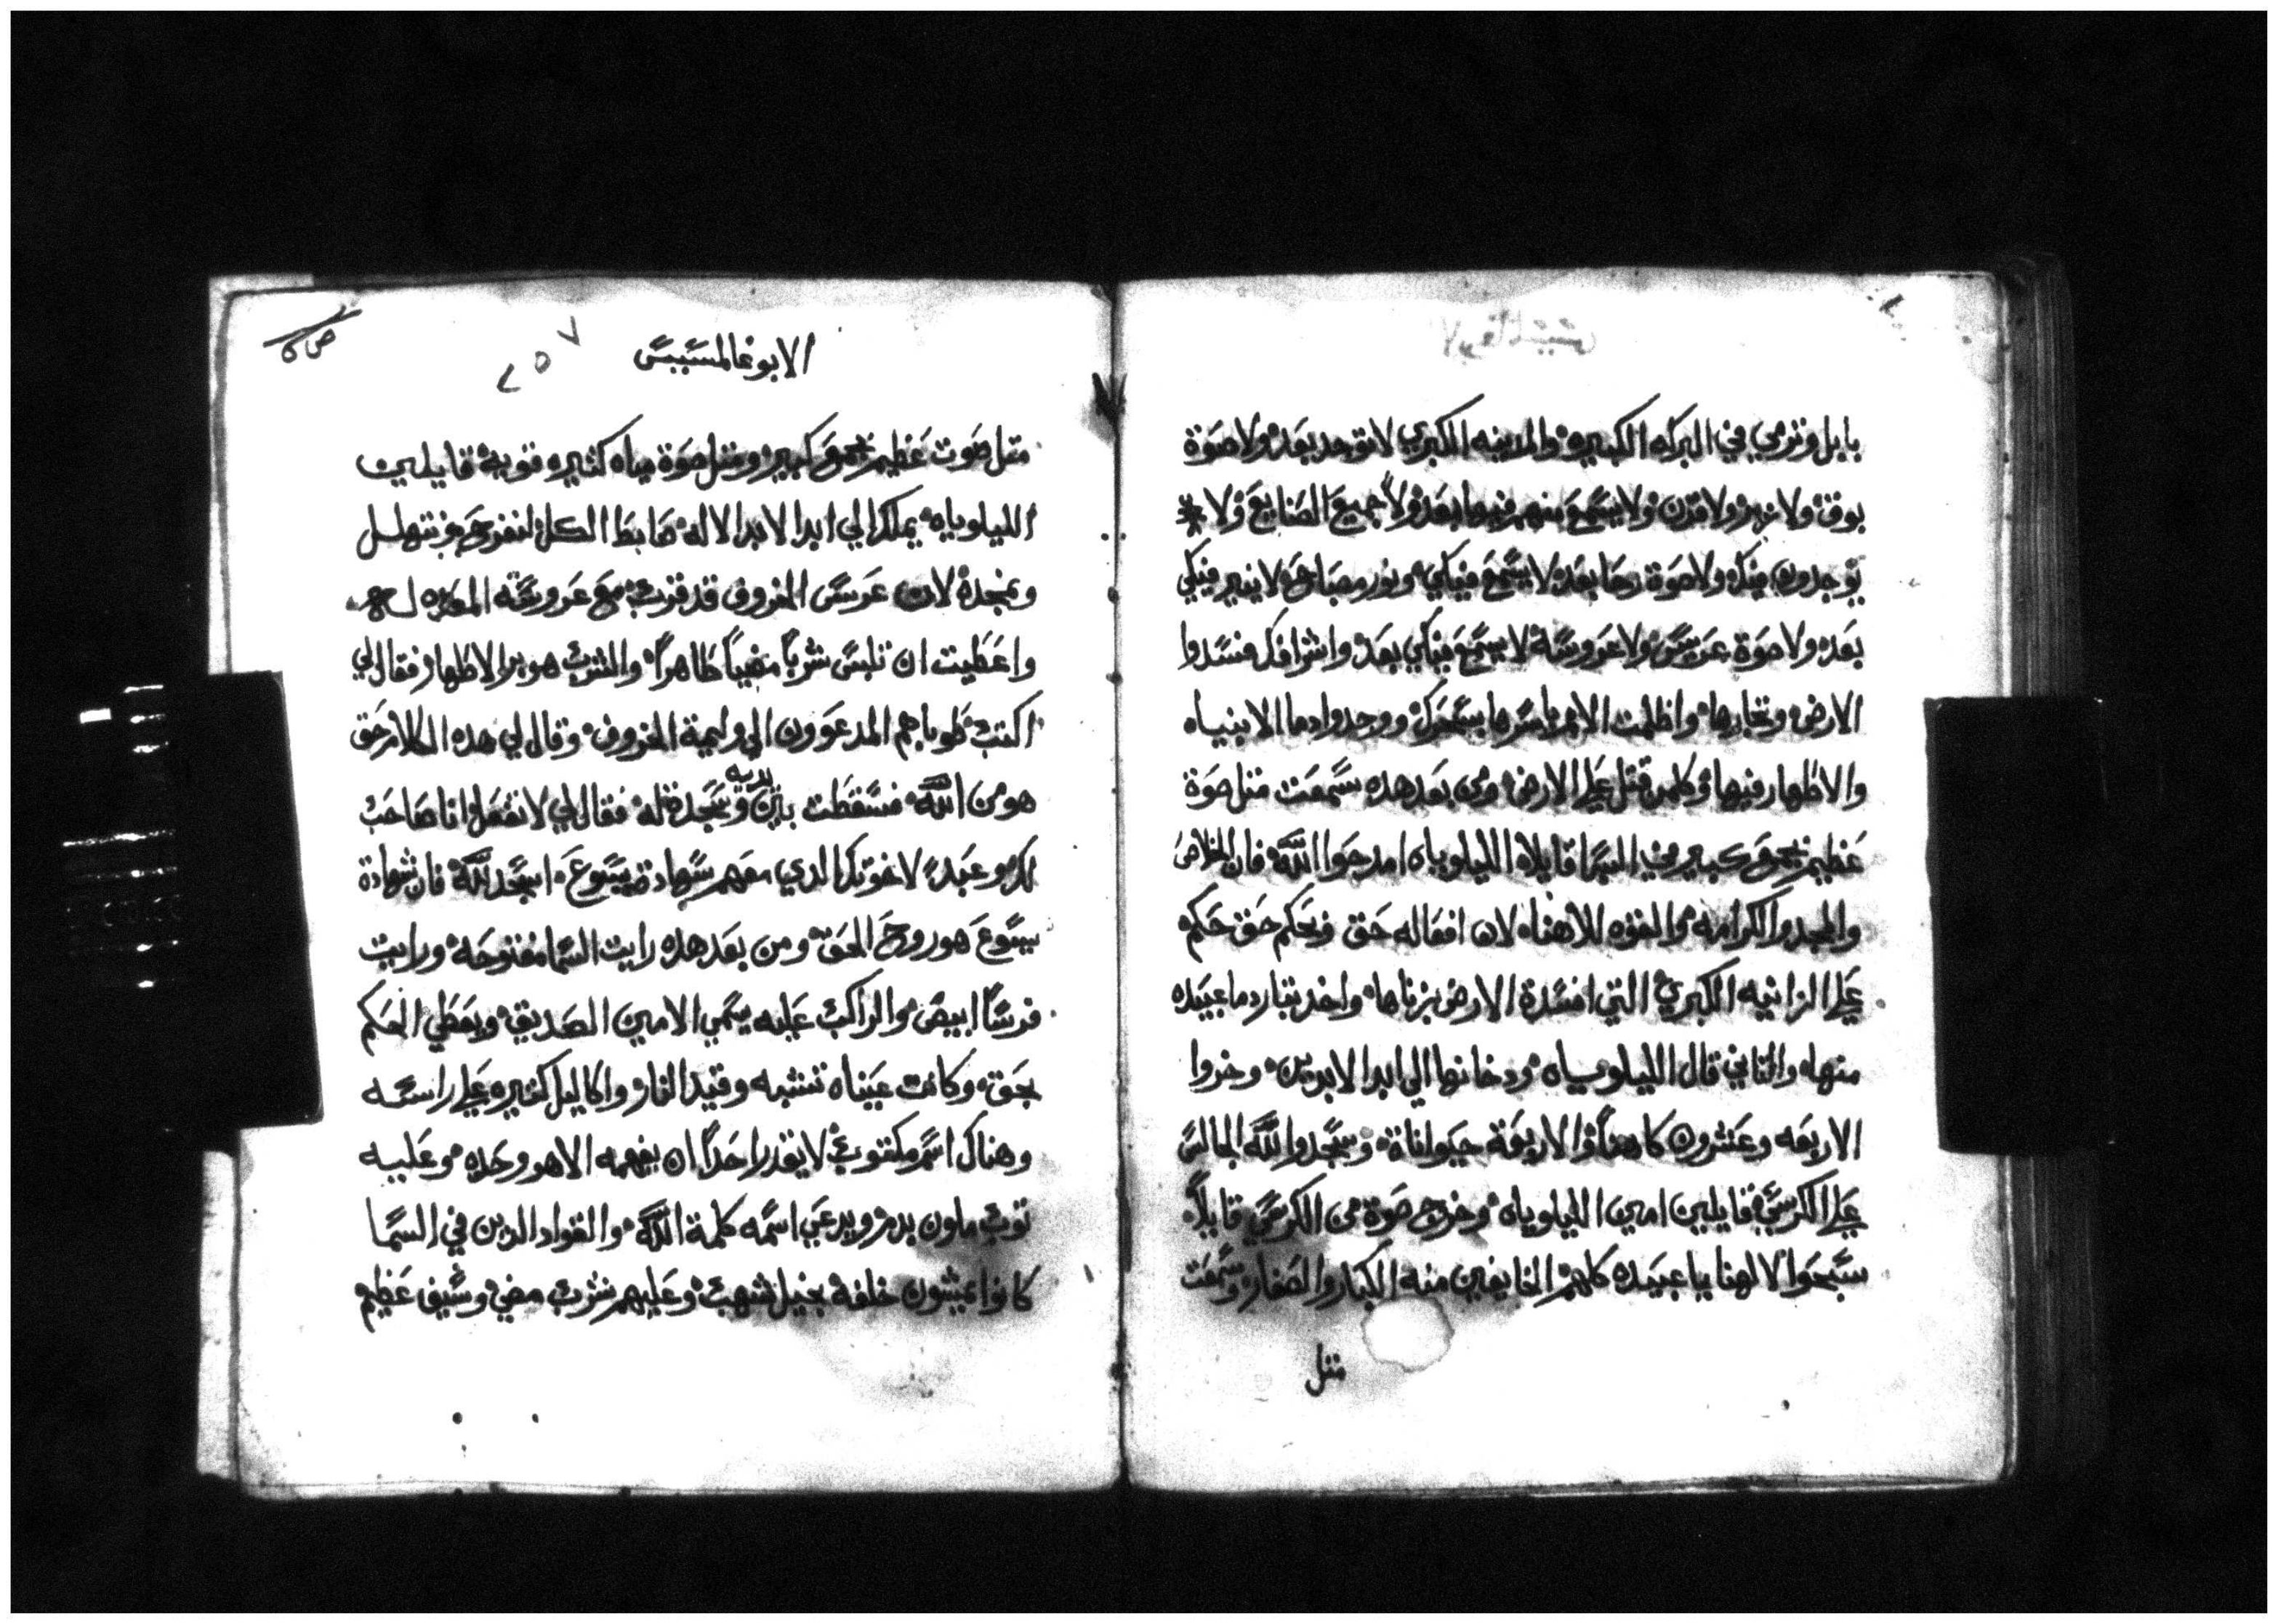 بابل وترمي في البركه الكبيره والمدينه الكبري لا توجد بعد ولا صوة
بوق ولا ولا قرن ولا يسمع منهم فيها بعد ولا جميع الصنايع ولا
يوجدون فيكي ولا صوة رحا بعد لا يسمع فيكي ونور مصباح لا ينير فيكي
بعد ولا صوة عريس ولا عروسة لا يسمع فيكي بعد واشرافك فسدوا
الارض وتجارها واظلمت الامم باسرها بسحرك ووجدوا دما الانبياه
والاطهار فيها وكلمن قتل علي الارض ومن بعد هده سمعت متل صوة
عظيم بجوق كبير في السما قايلاه الليلوياه امدحوا اللّه فان الخلاص
والمجد والكرامه والقوه لالاهناه لان افعاله حق وتحكم حق حكم
علي الزانيه الكبري التي افسدة الارض بزناها واخد بتار دما عبيده
منهاه والتاني قال الليلوياه ودخانها الي ابد الابدين وخروا
الاربعه وعشرون كاهناً والاربعة حيواناة وسجدوا للّه الجالس
علي الكرسي قايلين امين الليلوياه وخرج صوة من الكرسي قايلاً
سبحوا لالهنا يا عبيده كلهم الخايفين منه الكبار والصغار وسمعت
متل
الابوغالمسيس
٢٥٧
متل صوت عظيم بجوق كبير ومتل صوة مياه كتيره قويه قايلين
الليلوياه يملك الي ابد الابد الاله ضابط الكل لنفرح ونتهلل
ونمجده لان عرس الخروف قد قرب مع عروسته المعده له
واعطيت ان تلبس ثرباً مضياً طاهراً والثرب هو بر الاطهار فقال لي
اكتب طوباهم المدعوون الي وليمة الخروف وقال لي هده الكلام حق
هو من اللّه فسقطت بين يديه وسجدة له فقال لي لا تفعل انا صاحب
لك وعبد لاخوتك الدي معهم شهادة يسوع اسجد للّه فان شهادة
يسوع هو روح الحق ومن بعد هده رايت السما مفتوحة ورايت
فرساً ابيض والراكب عليه يسمي الامين الصديق ويعطي الحكم
بحق وكانت عيناه تشبه وقيد النار واكاليل كتيره علي راسه
وهناك اسم مكتوب لا يقدر احداً ان يفهمه الا هو وحده وعليه
توب ملون بدم ويدعي اسمه كلمة اللّه والقواد الدين في السما
كانوا يمشون خلفه بخيل شهب وعليهم ثرب مضي وسيف عظيم